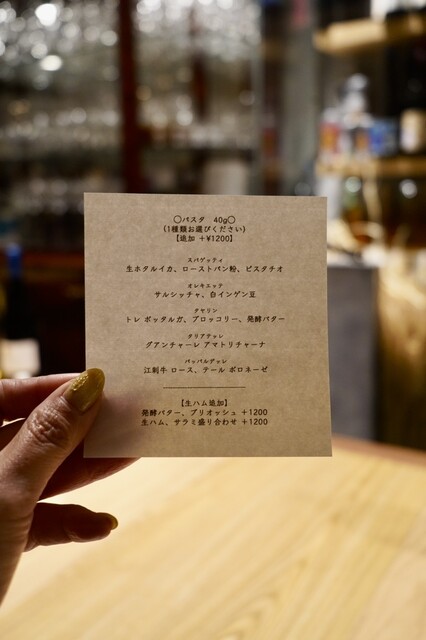 〇パスタ 40g〇
(1種類お選びください)
【追加 +¥1200】
スパゲッティ
生ホタルイカ、ローストパン粉、ピスタチオ
オレキエッテ
サルシッチャ、白インゲン豆
タヤリン
トレ ボッタルガ、ブロッコリー、発酵バター
タリアテッレ
グアンチャーレ アマトリチャーナ
パッパルデッレ
江刺牛 ロース、テール ボロネーゼ
【生ハム追加】
発酵バター、ブリオッシュ +1200
生ハム、サラミ盛り合わせ +1200